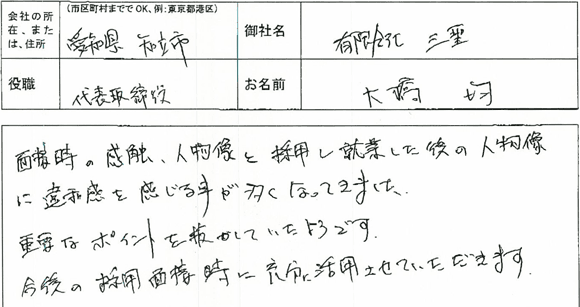 (市区町村まででOK、例:東京都港区)
会社の所在、または、住所
愛知県 知立市
御社名
有限会社 三重
役職
代表取締役
お名前
大橋
面接時の感触、人物像と採用し就業した後の人物像
に違和感を感じる事が多くなってきました。
重要なポイントを抜かしていたようです。
今後の採用面接時に充分に活用させていただきます。